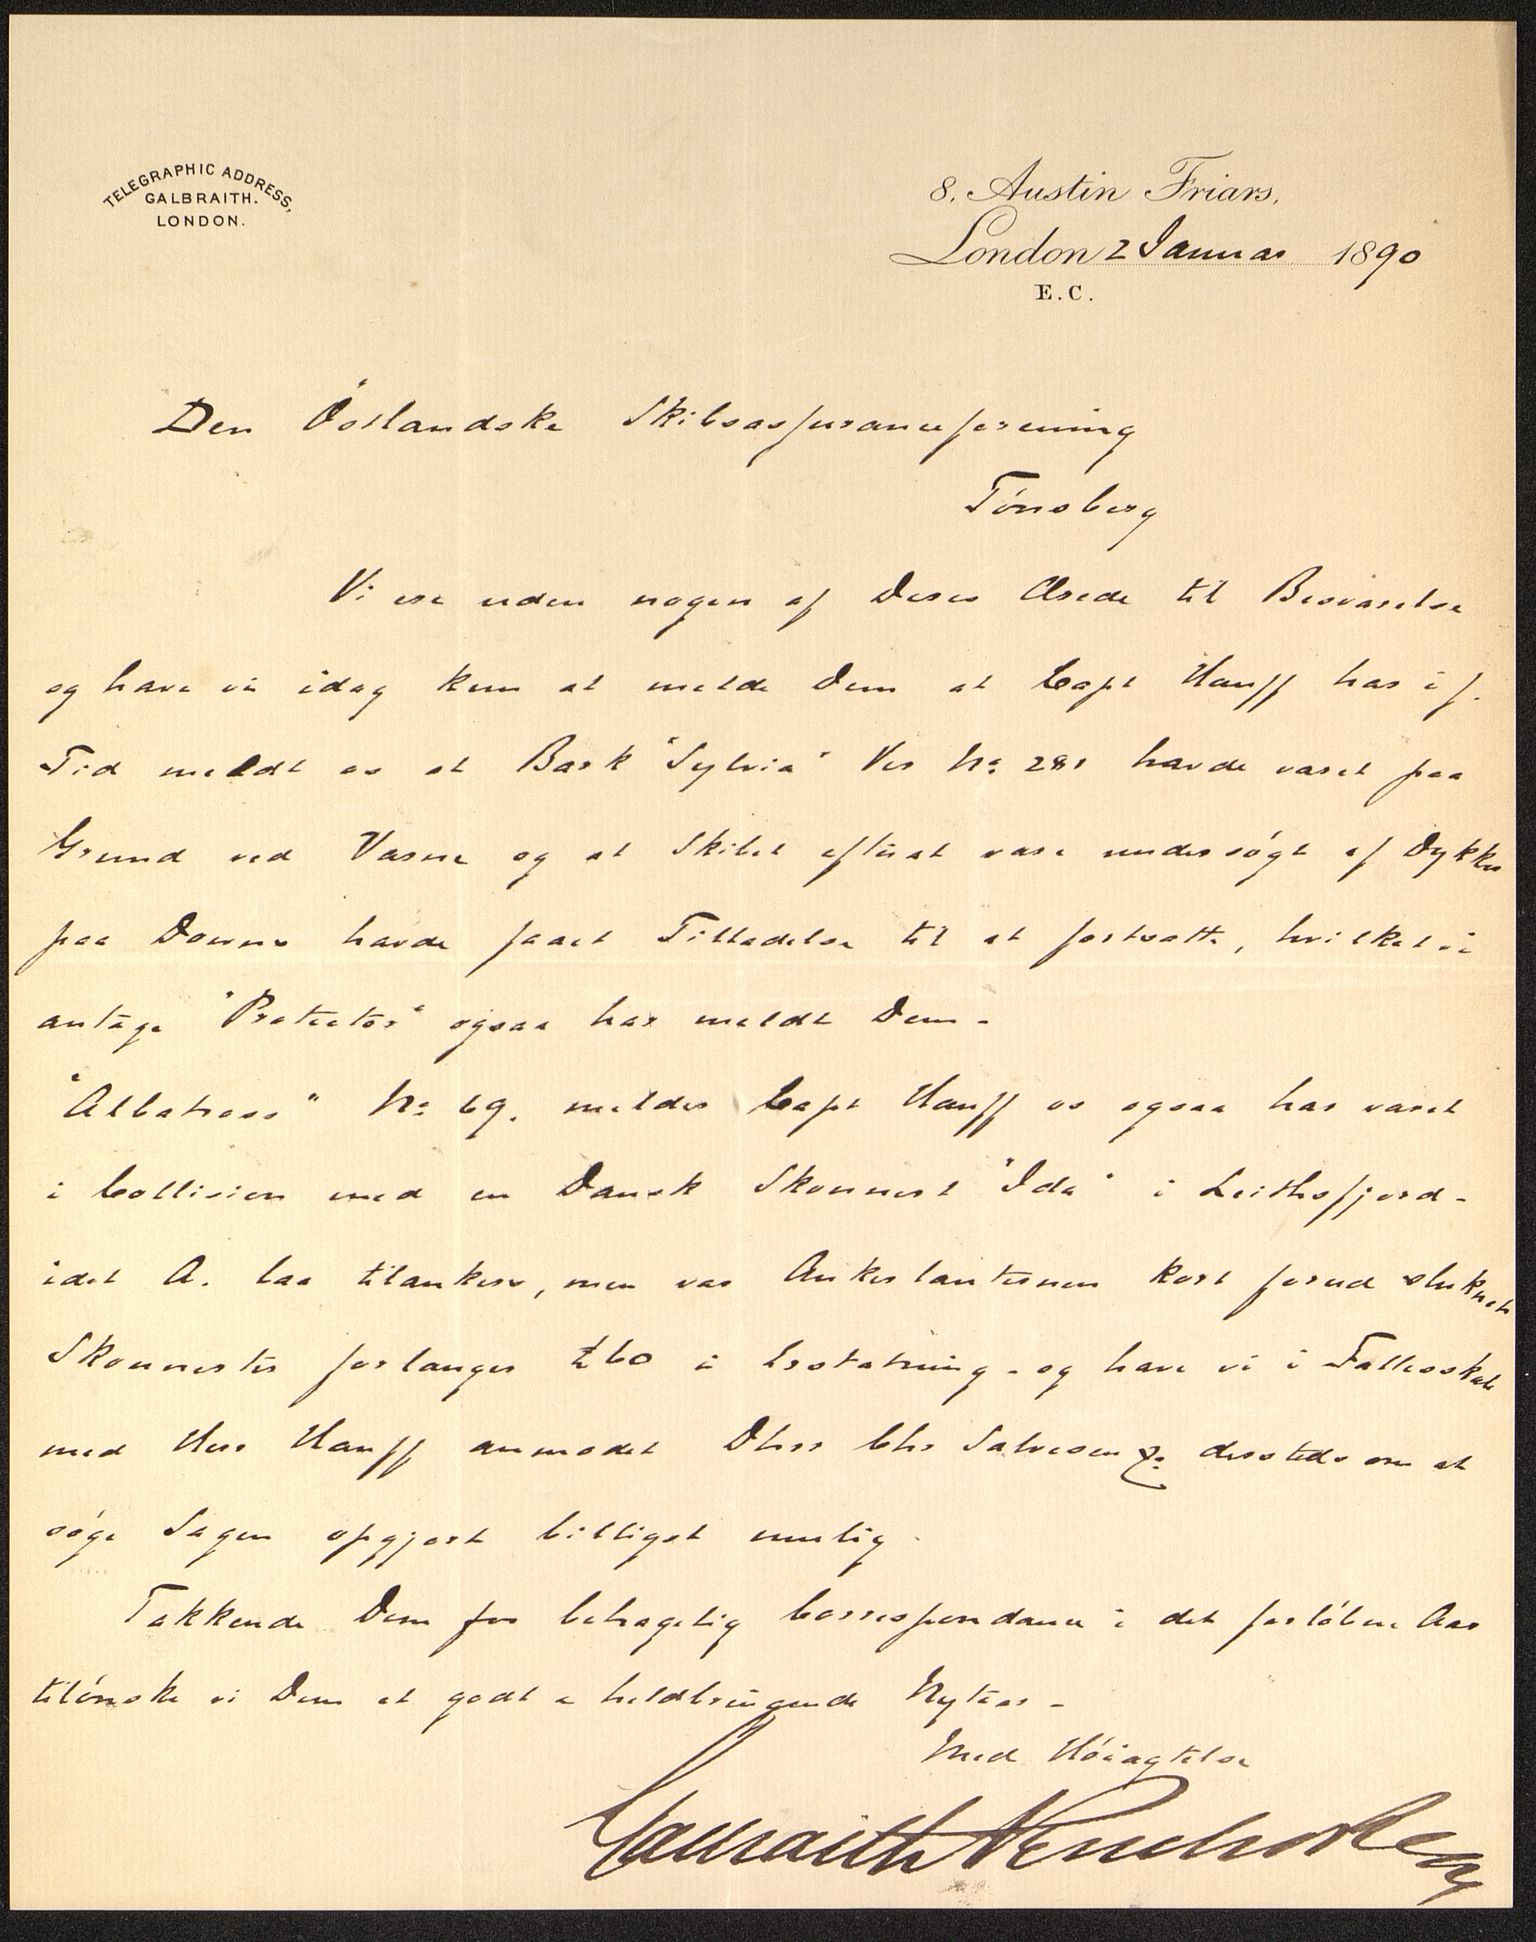 TELEGRAPHIC ADDRESS,
GALBRAITH.
LONDON.
8, Austin Friars,
London 2 Januar 1890
E.C.
Den Östlandske Skibsassuranceforening
Tönsberg
Vi ere uden nogen af Deres Ærede til Besvarelse
og have vi idag kun at melde Dem at Capt Hauff har i f.
Tid meldt os at Bark "Sylvia" Ver No 281 havde været paa
Grund ved Varne og at Skibet efterat være undersögt af Dykker
paa Downs havde faaet Tilladelse til at fortsætte, hvilket vi
antage "Protector" ogsaa har meldt Dem -
"Albatross" No 69. melder Capt Hauff os ogsaa har været
i Collision med en Dansk Skonnert "Ida" i Leithsfjord -
idet A. laa tilankers, men var Ankerlanternen kort forud sluknet
Skonnerten forlanger £60 i Erstatning - og have vi i Fællesskab
med Herr Hauff anmodet Dhrr Chr Salvesen & Co dersteds om at
söge Sagen opgjort billigst mulig.
Takkende Dem for behagelig Correspondance i det forlöbne Aar
tilönske vi Dem et godt & heldbringende Nytaar -
Med Höiagtelse
Galbraith Pembroke